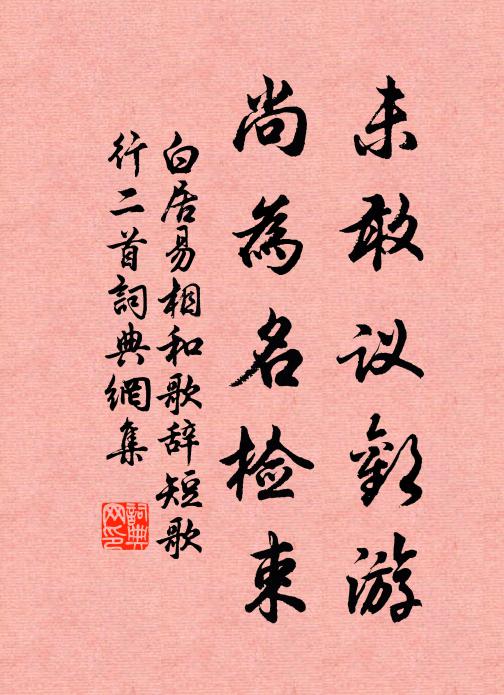 未敢议歡游
尚為名检束
白居易相和歌辞短歌
行二首詞典網集
詞典
网印